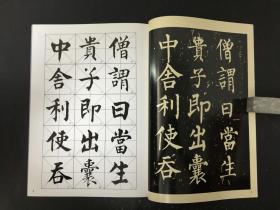 僧謂曰當生
貴子即出囊
中舍利使吞
僧謂曰當生
貴子即出囊
中舍利使吞